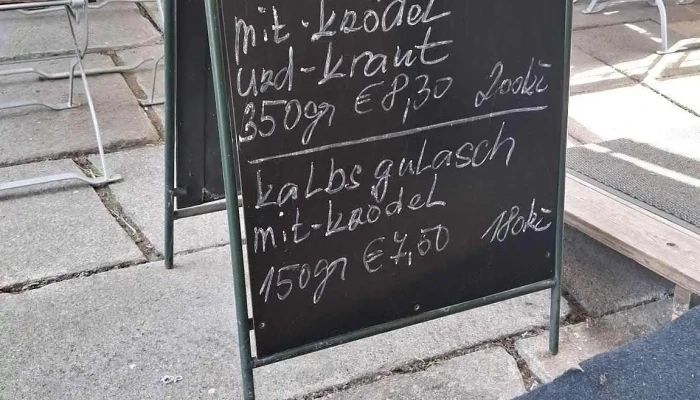 mit-krödel
urd-kraut
350gr €8,30 200kč
kalbs gulasch
mit-krödel
150gr €7,50 180kč